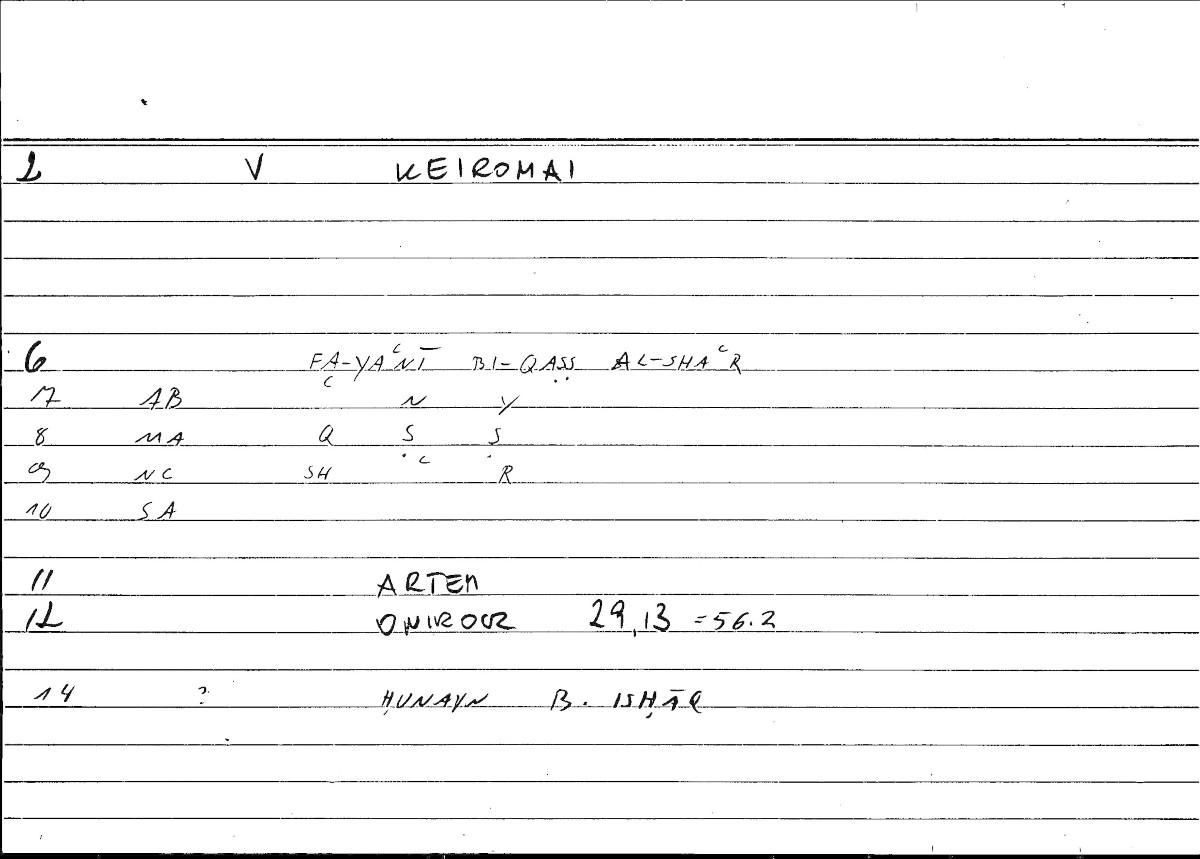 2 V KEIROMAI
6 FA-YAʿNĪ BI-QAṢṢ AL-SHAʿR
7 AB ʿ N Y
8 MA Q Ṣ Ṣ
9 NC SH ʿ R
10 SA
11 ARTEM
12 ONIROCR 29,13 =56.2
14 ? ḤUNAYN B. ISḤĀQ